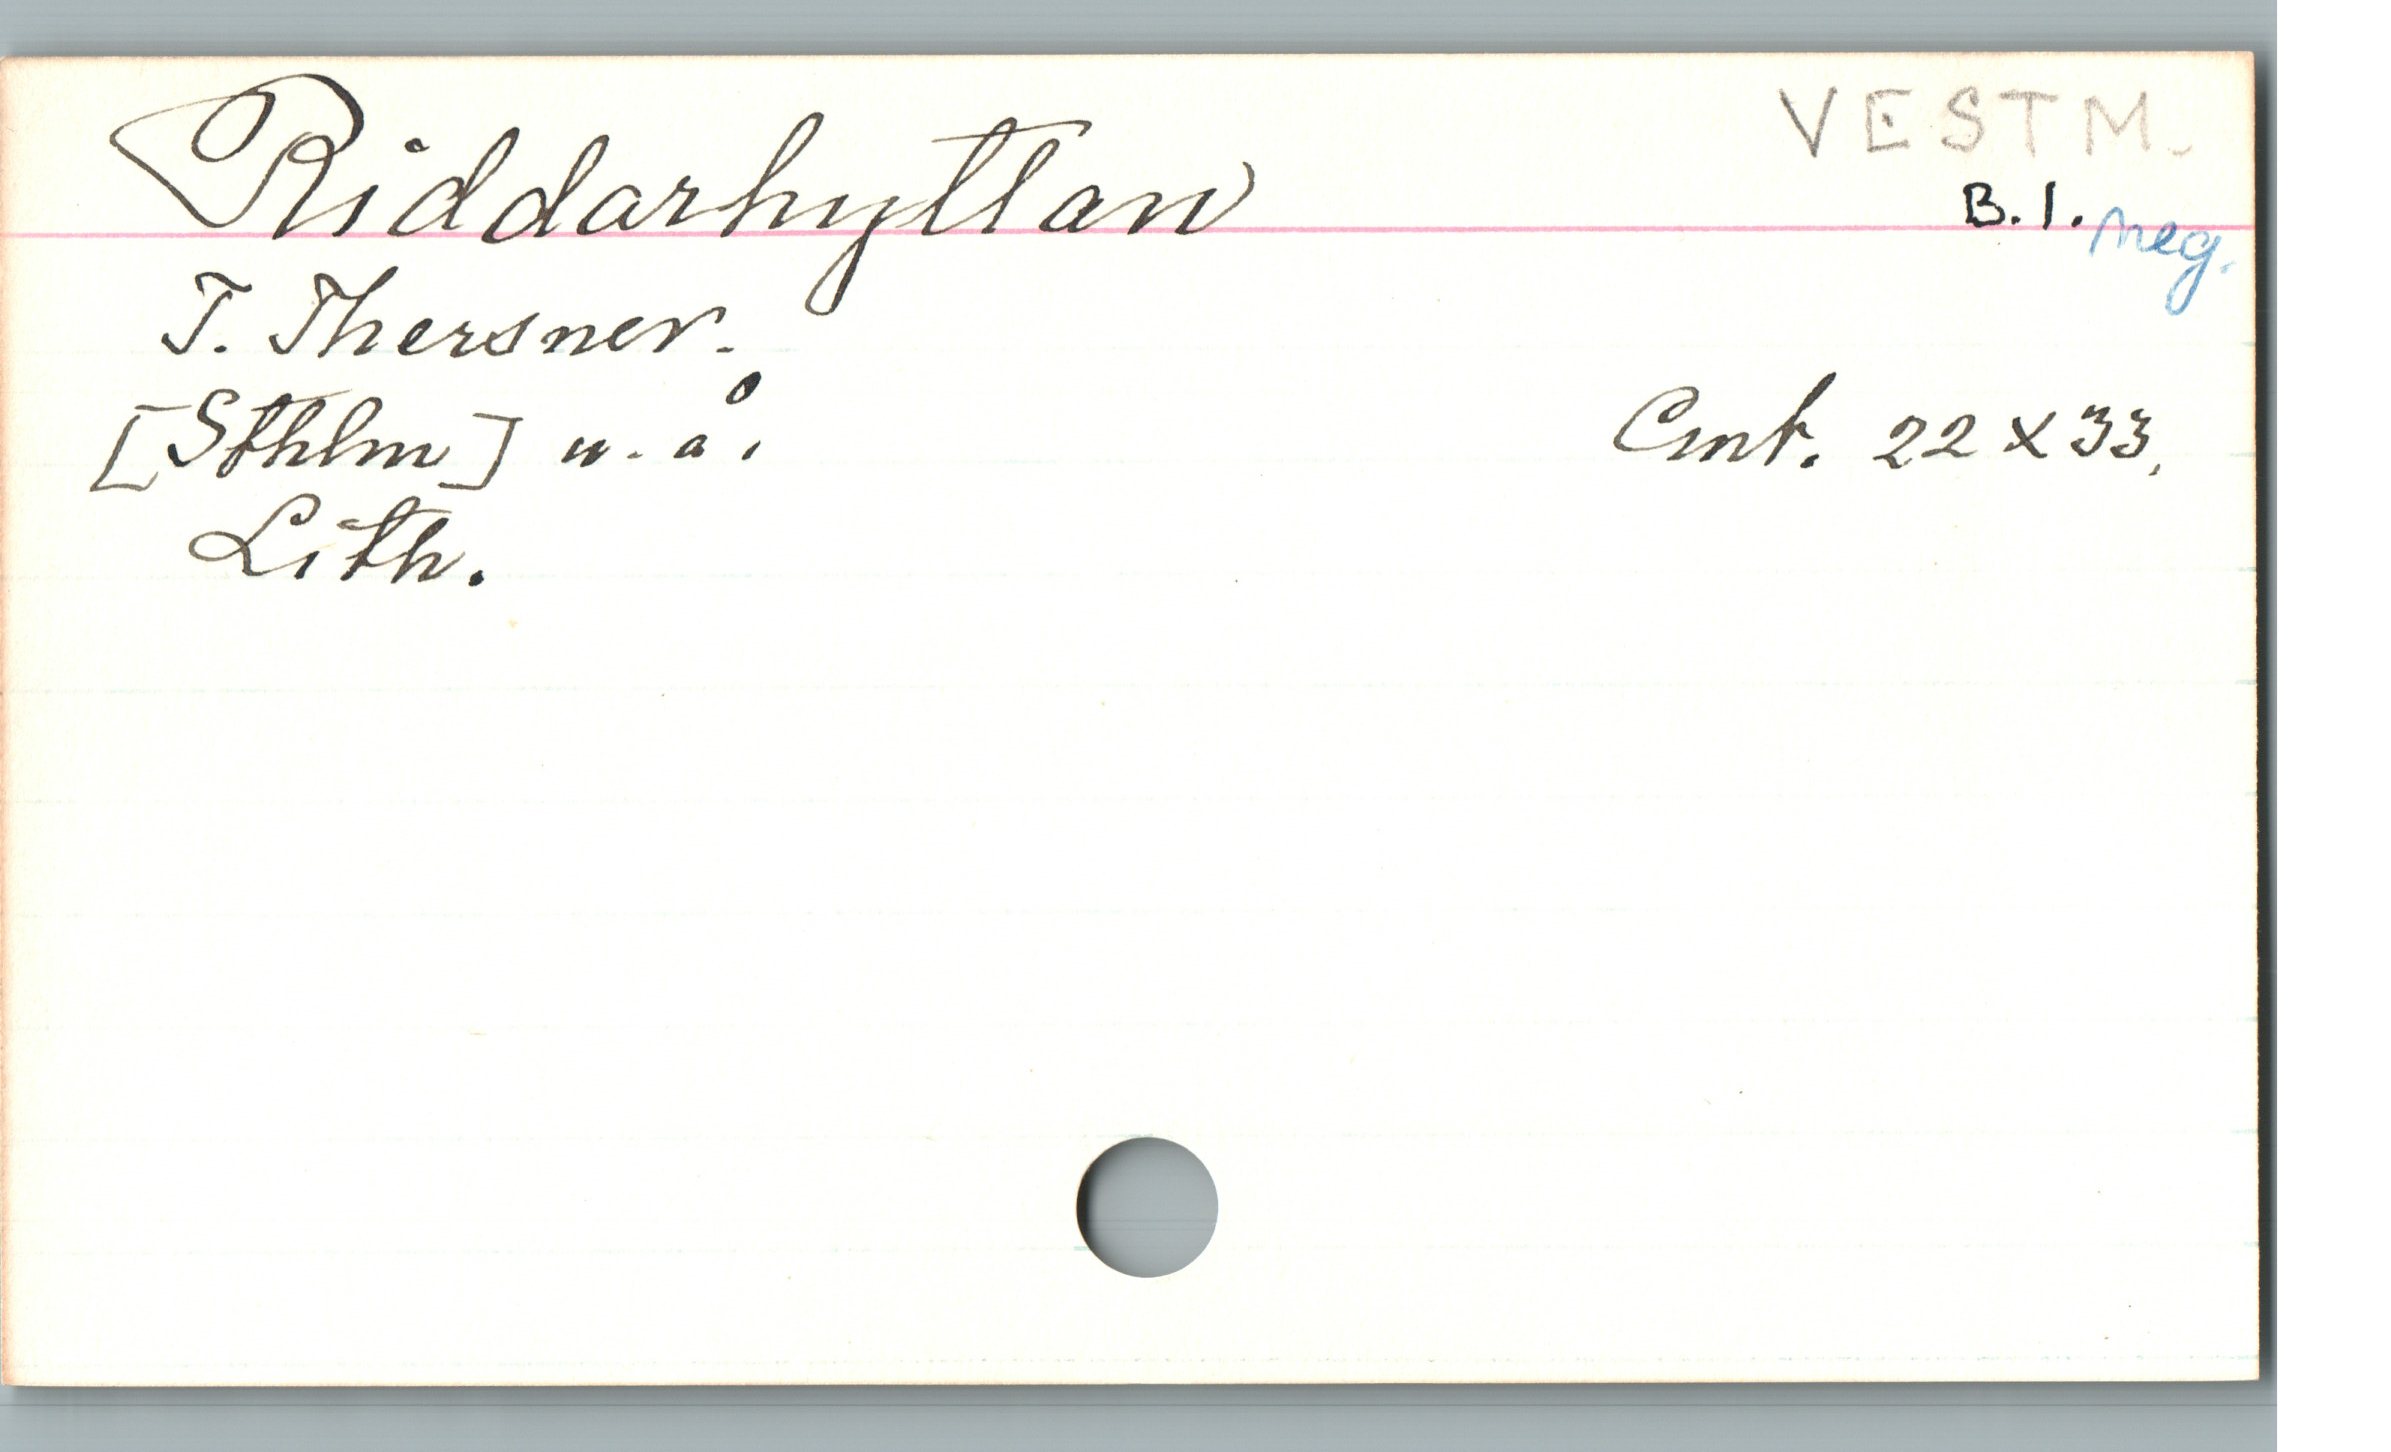 Riddarhyttan
VESTM.
B.1. neg.
T. Thersner.
[Sthlm] u. å. Cmt. 22 x 33,
Lith.